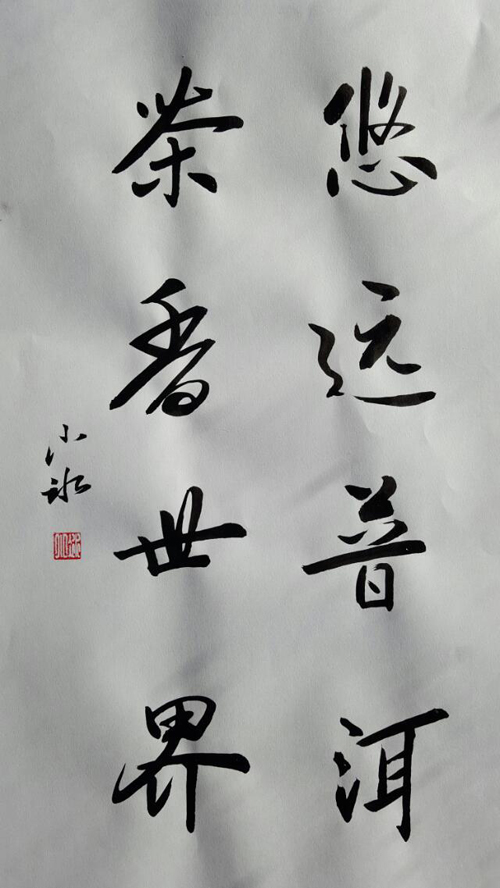 悠远普洱
茶香世界
小冰